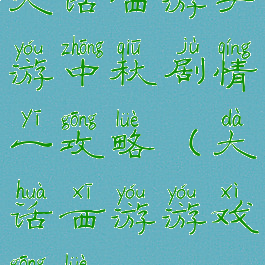 大话西游手
yóu zhōng qiū jù qíng
游中秋剧情
yī gōng lüè dà
一攻略（大
huà xī yóu yóu xì
话西游游戏
gōng lüè